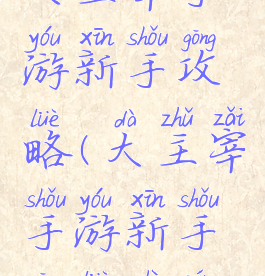 yóu xīn shǒu gōng
游新手攻
lüè dà zhǔ zǎi
略(大主宰
shǒu yóu xīn shǒu
手游新手